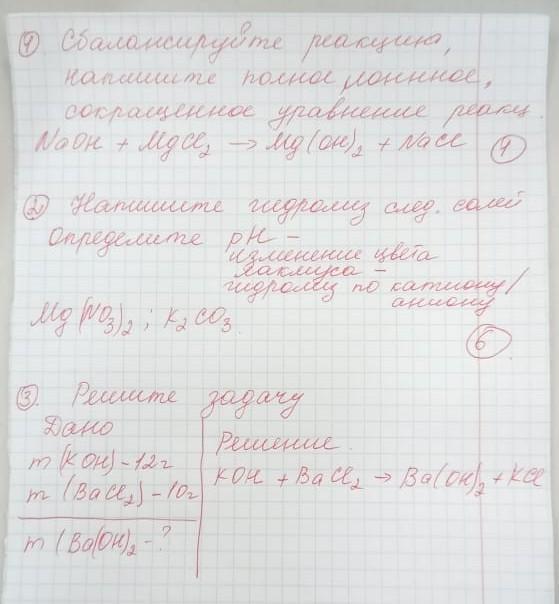 ① Сбалансируйте реакцию,
напишите полное, ионное,
сокращенное уравнение реакц.
NaOH + MgCl₂ → Mg(OH)₂ + NaCl ④
② Напишите гидролиз след. солей
Определите pH –
изменение цвета
лакмуса –
гидролиз по катиону/
аниону
Mg(NO₃)₂ ; K₂CO₃.
⑥
③. Решите задачу
Дано
Решение.
m (KOH) – 12г
KOH + BaCl₂ → Ba(OH)₂ + KCl
m (BaCl₂) – 10г
m (Ba(OH)₂ – ?